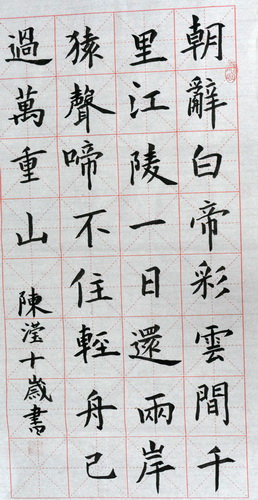 朝辭白帝彩雲間千
里江陵一日還兩岸
猿聲啼不住輕舟已
過萬重山
陳瀅十歲書